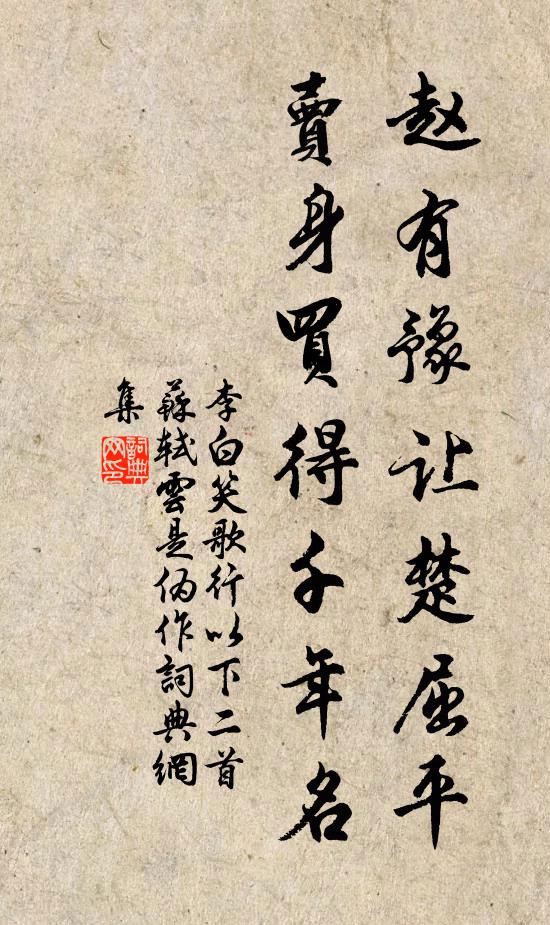 赵有豫让楚屈平
賣身買得千年名
李白笑歌行以下二首
蘇軾雲是伪作詞典網
集
詞典網印